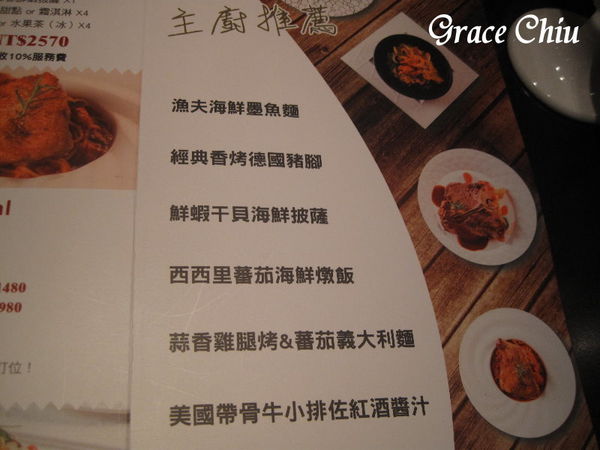 甜點 or 霜淇淋 X4
or 水果茶（冰）X4
NT$2570
收10%服務費
主廚推薦
Grace Chiu
漁夫海鮮墨魚麵
經典香烤德國豬腳
鮮蝦干貝海鮮披薩
西西里蕃茄海鮮燉飯
蒜香雞腿烤&蕃茄義大利麵
美國帶骨牛小排佐紅酒醬汁
1480
980
訂位！